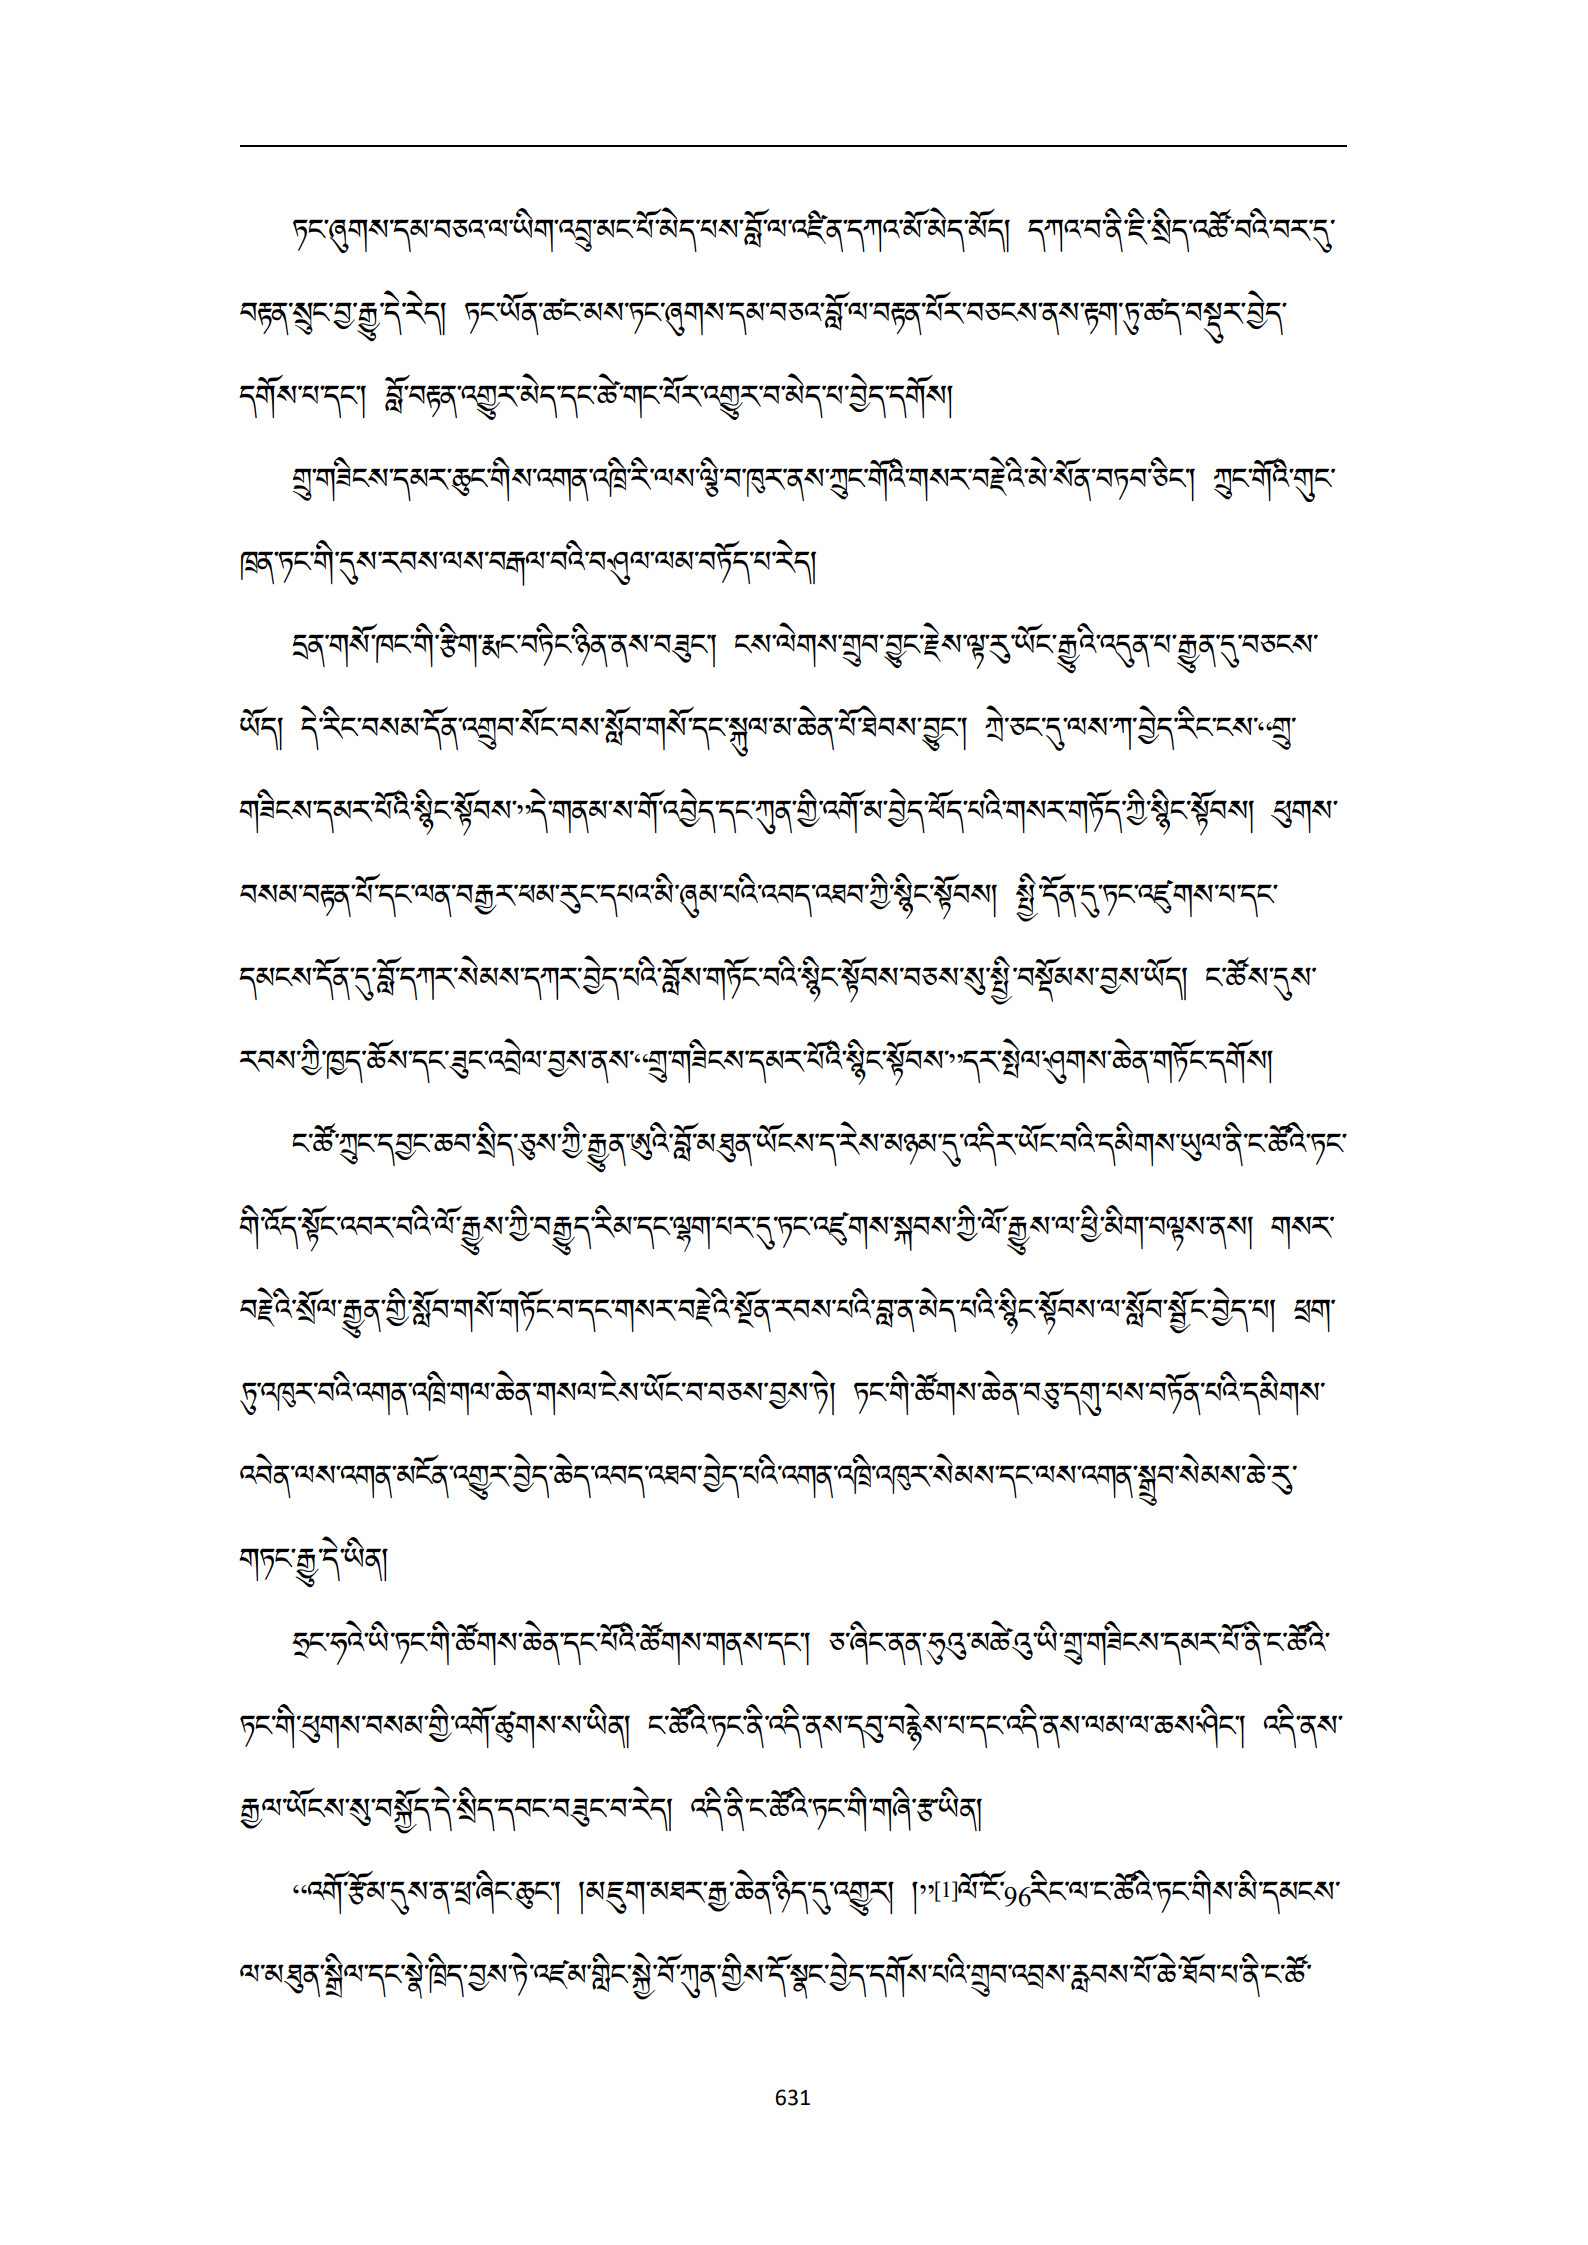 ཏང་ཞུགས་དམ་བཅའ་ལ་ཡིག་འབྲུ་མང་པོ་མེད་པས་བློ་ལ་འཛིན་དཀའ་མོ་མེད་མོད། དཀའ་བ་ནི་ཇི་སྲིད་འཚོ་བའི་བར་དུ་
བརྟན་སྲུང་བྱ་རྒྱུ་དེ་རེད། ཏང་ཡོན་ཚང་མས་ཏང་ཞུགས་དམ་བཅའ་བློ་ལ་བརྟན་པོར་བཅངས་ནས་རྟག་ཏུ་ཚད་བསྡུར་བྱེད་
དགོས་པ་དང་། བློ་བརྟན་འགྱུར་མེད་དང་ཚེ་གང་པོར་འགྱུར་བ་མེད་པ་བྱེད་དགོས།
གྲུ་གཟིངས་དམར་ཆུང་གིས་འགན་འཁྲི་རི་ལས་ལྕི་བ་ཁུར་ནས་ཀྲུང་གོའི་གསར་བརྗེའི་མེ་སོན་བཏབ་ཅིང་། ཀྲུང་གོའི་གུང་
ཁྲན་ཏང་གི་དུས་རབས་ལས་བརྒལ་བའི་བཤུལ་ལམ་བཏོད་པ་རེད།
དྲན་གསོ་ཁང་གི་རྩིག་རྨང་བཏིང་ཉིན་ནས་བཟུང་། ངས་ལེགས་གྲུབ་བྱུང་རྗེས་ལྟ་རུ་ཡོང་རྒྱུའི་འདུན་པ་རྒྱུན་དུ་བཅངས་
ཡོད། དེ་རིང་བསམ་དོན་འགྲུབ་སོང་བས་སློབ་གསོ་དང་སྐུལ་མ་ཆེན་པོ་ཐེབས་བྱུང་། ཀྲེ་ཅང་དུ་ལས་ཀ་བྱེད་རིང་ངས་“གྲུ་
གཟིངས་དམར་པོའི་སྙིང་སྟོབས་”དེ་གནམ་ས་གོ་འབྱེད་དང་ཀུན་གྱི་འགོ་མ་བྱེད་ཕོད་པའི་གསར་གཏོད་ཀྱི་སྙིང་སྟོབས། ཕུགས་
བསམ་བརྟན་པོ་དང་ལན་བརྒྱར་ཕམ་རུང་དཔའ་མི་ཞུམ་པའི་འབད་འཐབ་ཀྱི་སྙིང་སྟོབས། སྤྱི་དོན་དུ་ཏང་འཛུགས་པ་དང་
དམངས་དོན་དུ་བློ་དཀར་སེམས་དཀར་བྱེད་པའི་བློས་གཏོང་བའི་སྙིང་སྟོབས་བཅས་སུ་སྤྱི་བསྡོམས་བྱས་ཡོད། ང་ཚོས་དུས་
རབས་ཀྱི་ཁྱད་ཆོས་དང་ཟུང་འབྲེལ་བྱས་ནས་“གྲུ་གཟིངས་དམར་པོའི་སྙིང་སྟོབས་”དར་སྤེལ་ཤུགས་ཆེན་གཏོང་དགོས།
ང་ཚོ་ཀྲུང་དབྱང་ཆབ་སྲིད་ཅུས་ཀྱི་རྒྱུན་ཨུའི་བློ་མཐུན་ཡོངས་ད་རེས་མཉམ་དུ་འདིར་ཡོང་བའི་དམིགས་ཡུལ་ནི་ང་ཚོའི་ཏང་
གི་འོད་སྟོང་འབར་བའི་ལོ་རྒྱུས་ཀྱི་བརྒྱུད་རིམ་དང་ལྷག་པར་དུ་ཏང་འཛུགས་སྐབས་ཀྱི་ལོ་རྒྱུས་ལ་ཕྱི་མིག་བལྟས་ནས། གསར་
བརྗེའི་སྲོལ་རྒྱུན་གྱི་སློབ་གསོ་གཏོང་བ་དང་གསར་བརྗེའི་སྔོན་རབས་པའི་བླ་ན་མེད་པའི་སྙིང་སྟོབས་ལ་སློབ་སྦྱོང་བྱེད་པ། ཕྲག་
ཏུ་འཁུར་བའི་འགན་འཁྲི་གལ་ཆེན་གསལ་ངེས་ཡོང་བ་བཅས་བྱས་ཏེ། ཏང་གི་ཚོགས་ཆེན་བཅུ་དགུ་པས་བཏོན་པའི་དམིགས་
འབེན་ལས་འགན་མངོན་འགྱུར་བྱེད་ཆེད་འབད་འཐབ་བྱེད་པའི་འགན་འཁྲི་འཁུར་སེམས་དང་ལས་འགན་སྒྲུབ་སེམས་ཆེ་རུ་
གཏང་རྒྱུ་དེ་ཡིན།
ཧྲང་ཧའེ་ཡི་ཏང་གི་ཚོགས་ཆེན་དང་པོའི་ཚོགས་གནས་དང་། ཅ་ཞིང་ནན་ཧུའུ་མཚེའུ་ཡི་གྲུ་གཟིངས་དམར་པོ་ནི་ང་ཚོའི་
ཏང་གི་ཕུགས་བསམ་གྱི་འགོ་ཚུགས་ས་ཡིན། ང་ཚོའི་ཏང་ནི་འདི་ནས་དབུ་བརྙེས་པ་དང་འདི་ནས་ལམ་ལ་ཆས་ཤིང་། འདི་ནས་
རྒྱལ་ཡོངས་སུ་བསྐྱོད་དེ་སྲིད་དབང་བཟུང་བ་རེད། འདི་ནི་ང་ཚོའི་ཏང་གི་གཞི་རྩ་ཡིན།
“འགོ་རྩོམ་དུས་ན་ཕྲ་ཞིང་ཆུང་། །མཇུག་མཐར་རྒྱ་ཆེན་ཉིད་དུ་འགྱུར། །”[1]ལོ་ངོ་96རིང་ལ་ང་ཚོའི་ཏང་གིས་མི་དམངས་
ལ་མཐུན་སྒྲིལ་དང་སྣེ་ཁྲིད་བྱས་ཏེ་འཛམ་གླིང་སྐྱེ་བོ་ཀུན་གྱིས་དོ་སྣང་བྱེད་དགོས་པའི་གྲུབ་འབྲས་རླབས་པོ་ཆེ་ཐོབ་པ་ནི་ང་ཚོ་
631